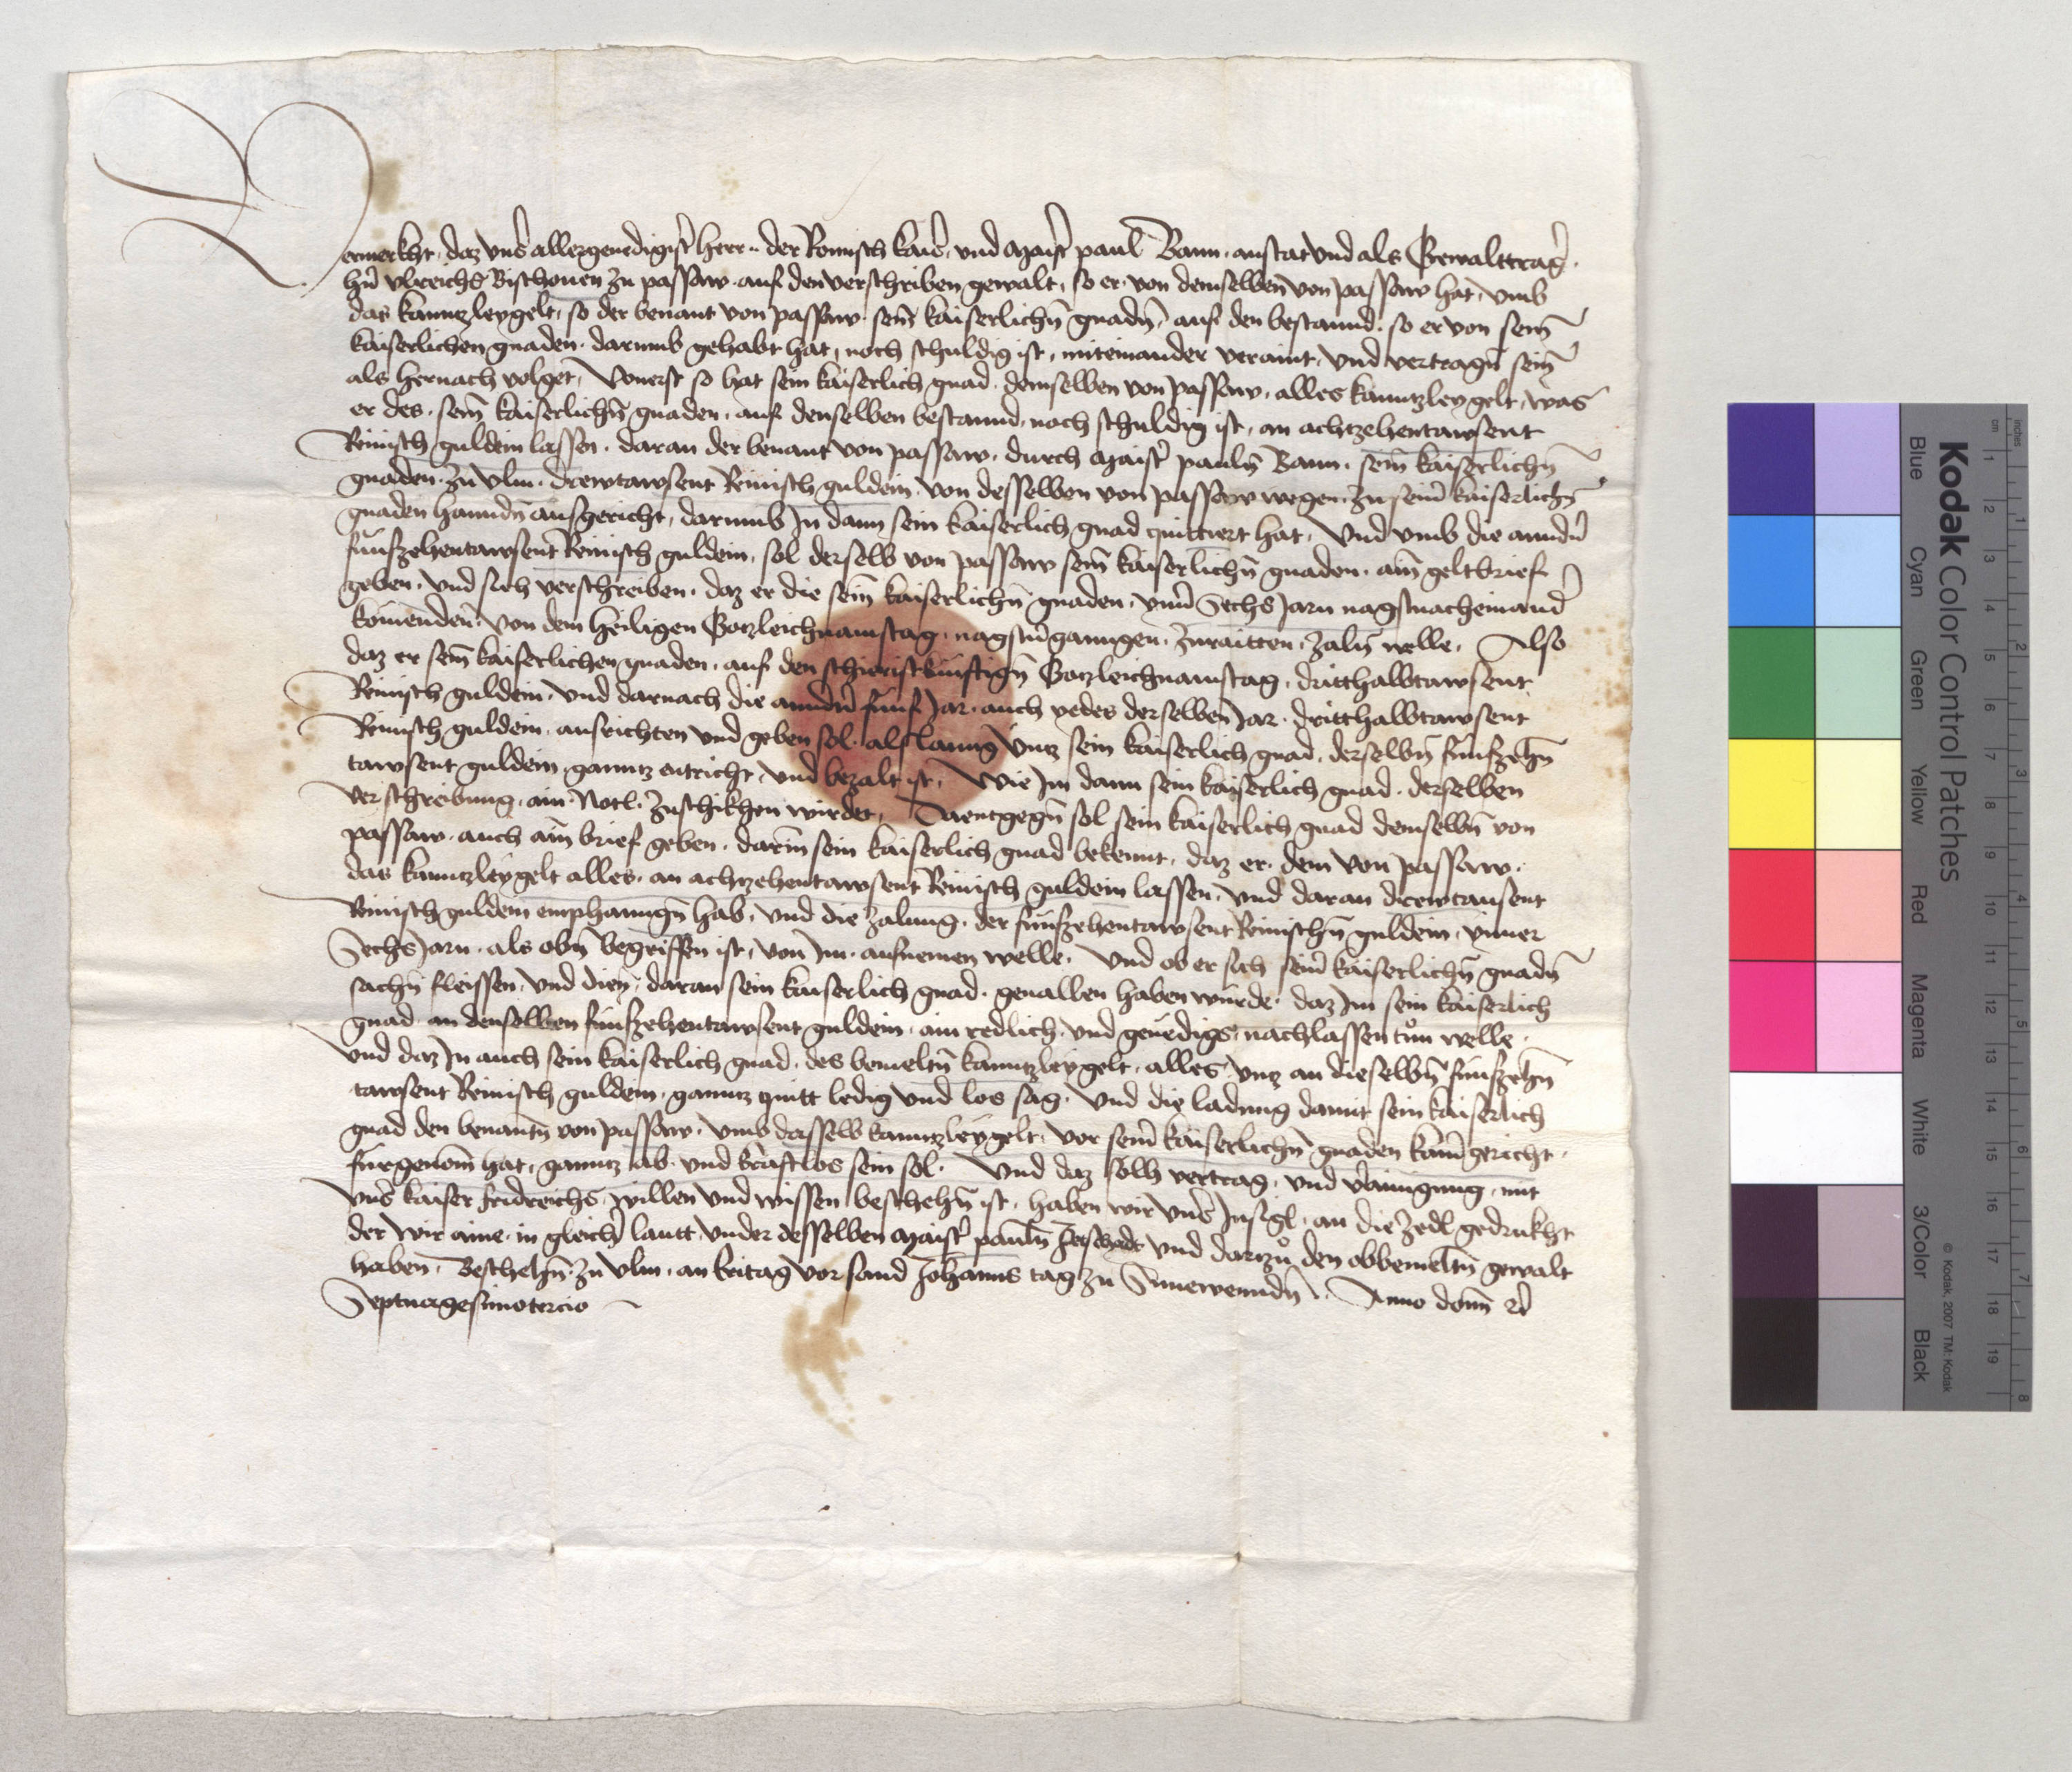 Vermerkht, daz vns̄ allergenedigist̄ herr.. der Romisch kais̄, und Maist̄ paul Bann, anstat und als Gewalttraḡ.
hn̄ Ulreichs Bischouen zu passaw. auf den verschriben gewalt, so er von demselben von passaw hat, vmb
das kanntzleygelt, so der benant von passaw. sein̄ kaiserlichn̄ gnadn̄, auf den bestannd. so er von sein̄
kaiserlichen gnaden. darumb gehabt hat, noch schuldig ist, miteinander veraint, und vertragn̄ sein̄
als hernach volget, Vonerst so hat sein kaiserlich gnad. demselben von passaw, alles kanntzleygelt, was
er des. sein̄ kaiserlichn̄ gnaden, auf denselben bestannd, noch schuldig ist, an achtzehentawsent
Reinisch guldein lassen. daran der benant von passaw. durch Maist̄ pauln̄ Bann. sein̄ kaiserlichn̄
gnaden. zu Vlm. drewtawsent Reinisch guldein. von desselben von passaw wegen. zu sein̄ kaiserlichn̄
gnaden hanndn̄ ausgericht, darumb In dann sein kaiserlich gnad quittiert hat, Und vmb die anndn̄
funfzehentawsent Reinisch guldein, sol derselb von passaw sein̄ kaiserlichn̄ gnaden. ain̄ geltbrief
geben, und sich verschreiben. daz er die sein̄ kaiserlichn̄ gnaden, vnn̄ Sechs Jarn nagstnacheinand̄
komenden̄. von dem heiligen Gotzleichnamstag, nagstu̅ganngen. zuraitten, zaln̄ welle, Also
daz er sein̄ kaiserlichen gnaden, auf den schieristkunftign̄ Gotzleichnamstag, dritthalbtawsent
Reinisch guldein, und darnach die anndn̄ funf Jar. auch yedes derselben Jar. dritthalbtawsent
Reinisch guldein. ausrichten und geben sol. alslanng Vntz sein kaiserlich gnad, derselbn̄ funfzehn̄
tawsent guldein, ganntz entricht, und bezalt ist, Wie Im dann sein kaiserlich gnad. derselben
verschreibung, ain Notl. zuschikhen wirdet, Daentgegn̄ sol sein kaiserlich gnad demselbn̄ von
passaw. auch ain̄ brief geben. darin̄ sein kaiserlich gnad bekennt, daz er. dem von passaw.
das kanntzleygelt alles. an achtzehentawsent Reinisch guldein lassen, und daran drewtausent
Reinisch guldein emphanngn̄ hab, und die zalung. der funfzehentawsent Reinischn̄ guldein, ynner
Sechs Jarn. als obn̄ begriffen ist, von Im. aufnemen welle. Und ob er sich sein̄ kaiserlichn̄ gnadn̄
sachn̄ fleissen, und dien̄, daran sein kaiserlich gnad. geuallen haben würde. daz Im sein kaiserlich
gnad. an denselben funfzehentawsent guldein, ain redlich. und genedigs nachlassen tun welle.
und daz In auch sein kaiserlich gnad. des bemeltn̄ kanntzleygelt, alles vntz an dieselbn̄ funfzehn̄
tawsent Reinisch guldein, ganntz quitt ledig und los sag. Und die ladung damit sein kaiserlich
gnad den benantn̄ von passaw. vmb dasselb kanntzleygelt. vor sein̄ kaiserlichn̄ gnaden kam̄gericht.
furgenom̄ hat, ganntz ab. und krafftlos sein sol. Und daz solh vertrag, und v̄ainigung, mit
vns̄ kaiser fridreichs, willen und wissen beschehn̄ ist, haben wir vns̄ Insigl. an die Zedl gedrukht
der wir aine, in gleich̄ lautt, under desselben Maist̄ pauln̄ Petschadt und dartzu den obbemeltn̄ gewalt
haben, Beschehn̄ zu Vlm. an freitag vor sand Johanns tag zu Sunnewenndn̄. Anno dom̄ &c̄
Septuagesimotercio